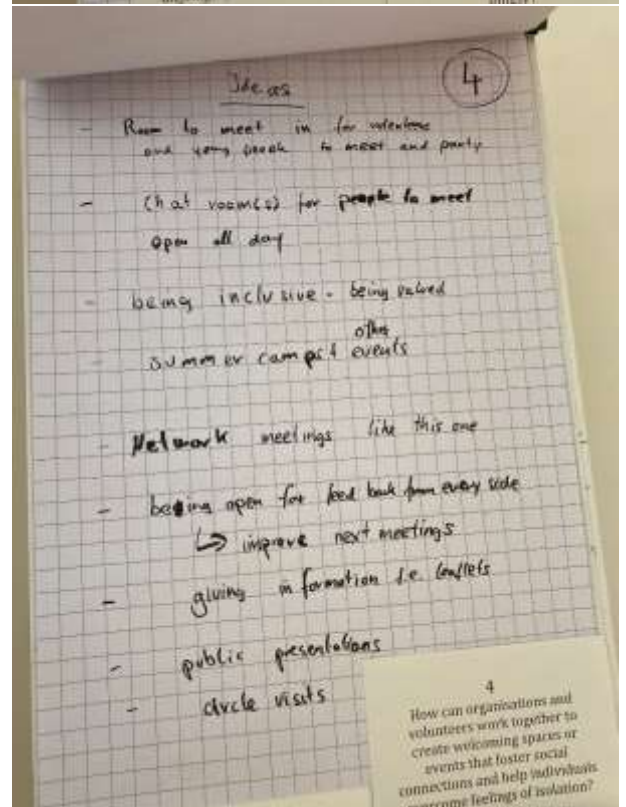 Ideas
4
- Room to meet in for volunteers
and young people to meet and party
- Chat room(s) for people to meet
open all day
- being inclusive - being valued
other
summer camps + events
- Network meetings like this one
- being open for feed back from every side
↳ improve next meetings
- giving information i.e. leaflets
- public presentations
- circle visits
4
How can organisations and
volunteers work together to
create welcoming spaces or
events that foster social
connections and help individuals
overcome feelings of isolation?